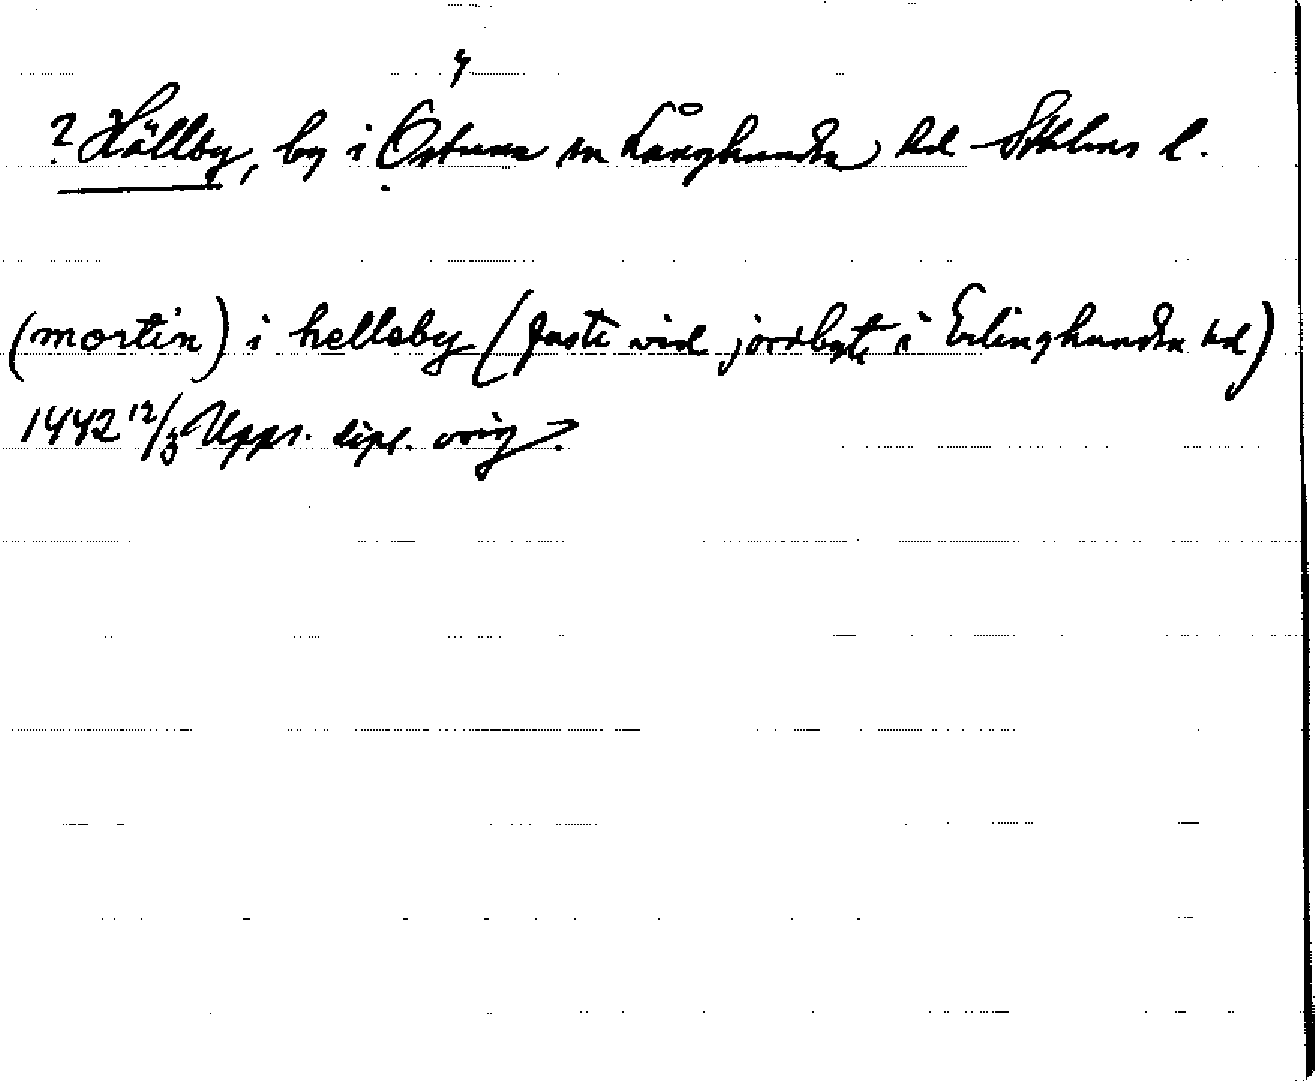 ? Hällby, by i Östuna sn Långhundra hd Sthlms l.
(mortin) i helleby (faste vid jordbyte i Erlinghundra hd)
1442 12/3 Upps. dipl. orig.